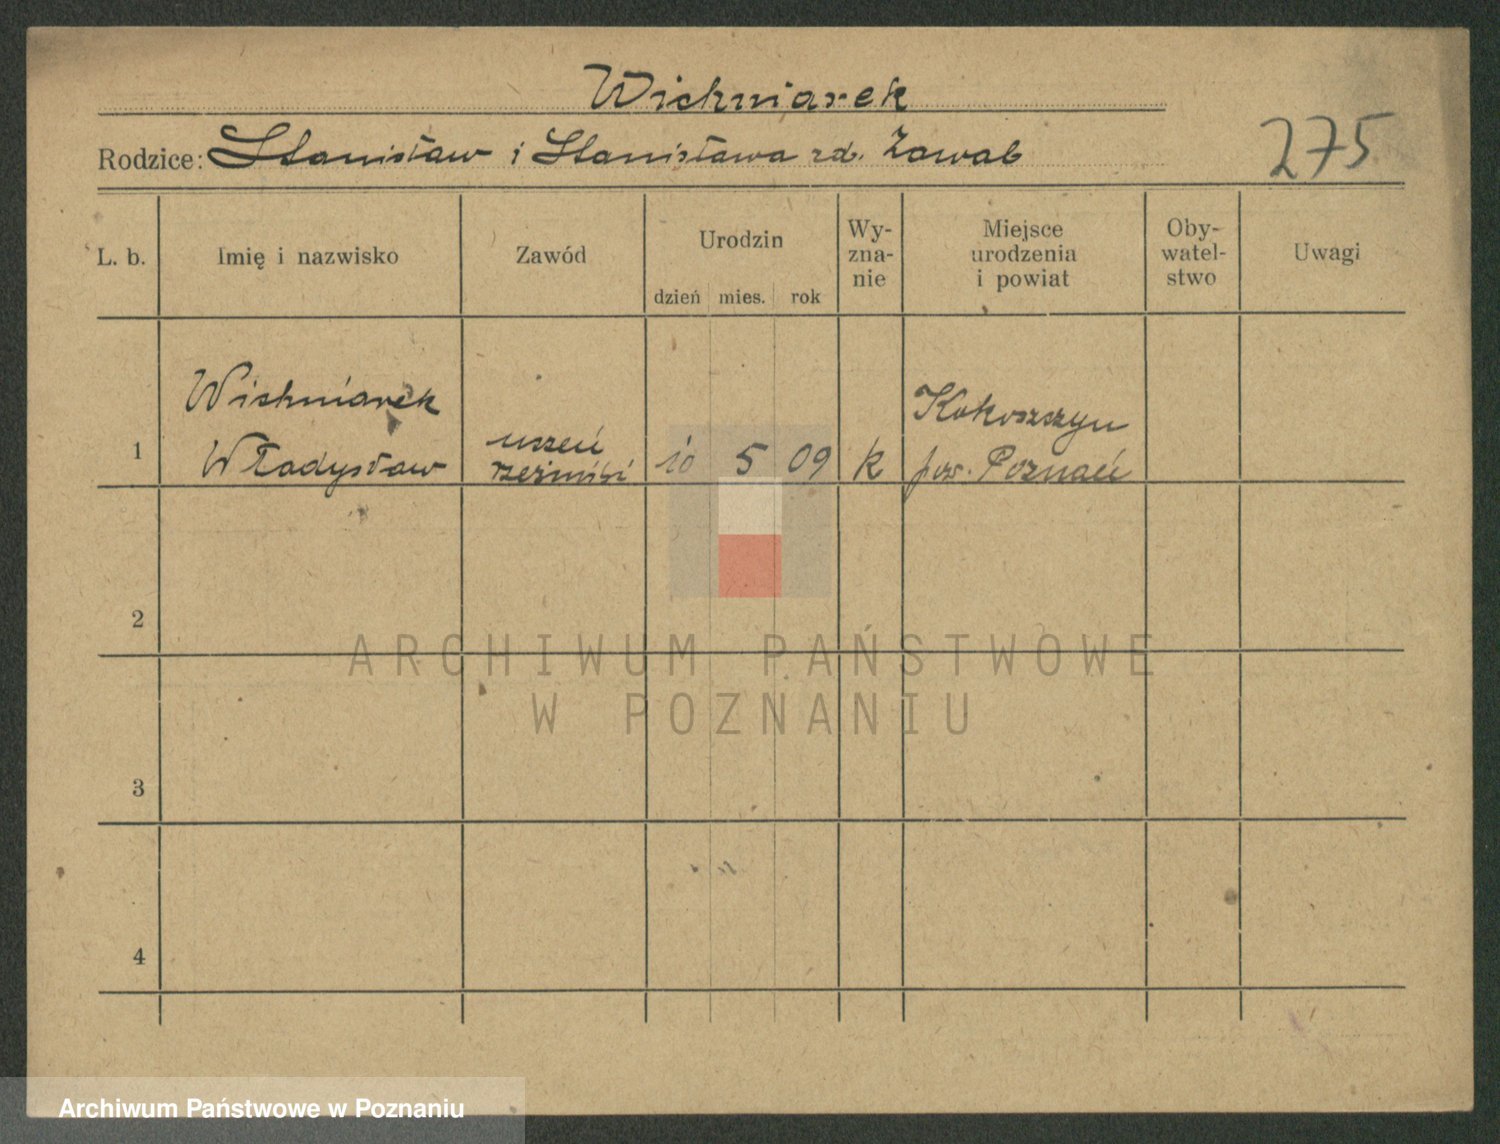 Wichniarek
Rodzice: Stanisław i Stanisława zd. Zawal
275
L. b.
Imię i nazwisko
Zawód
Urodzin
dzień mies. rok
Wy-
zna-
nie
Miejsce
urodzenia
i powiat
Oby-
watel-
stwo
Uwagi
1
Wichniarek
Władysław
uczeń
rzeźnicki
10 5 09
k
Kokoszczyn
pow. Poznań
2
3
4
ARCHIWUM PAŃSTWOWE
W POZNANIU
Archiwum Państwowe w Poznaniu